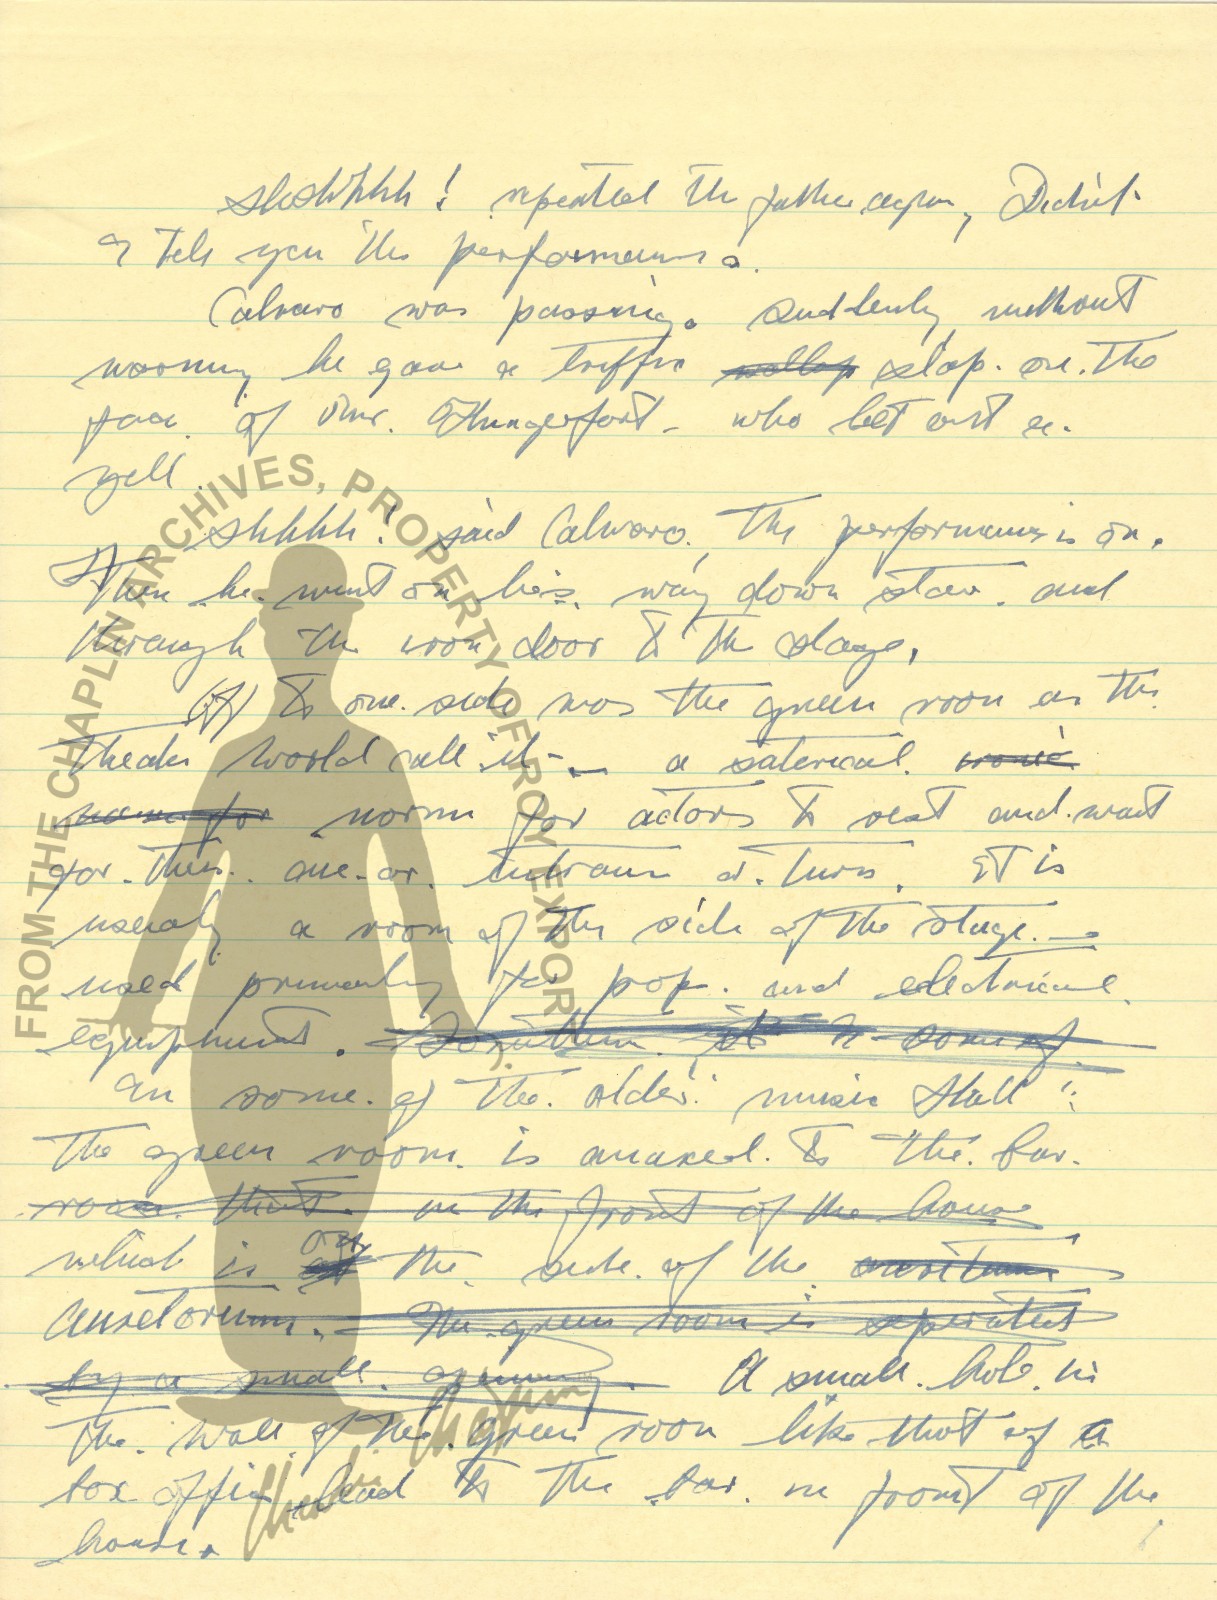 shshhhh! repeated the father again, Didn't
I tell you the performance.
Calvaro was passing. suddenly without
warning he gave a traffic wallop slap. on. the
face. of Mr. Hungerfort - who let out a.
yell.
shhhh! said Calvaro. The performance is on.
Then he. went on his. way down stair. and
through the iron door to the stage.
Off to one. side was the green room as the
Theater world call it - a
room for actors to rest and. wait
for. their. entrance or. turn. It is
usualy a room of the side of the stage. -
used primarily for prop. and electrical
equipment.
In some. of the. older. music Hall
The green room. is anaxed. to the. bar.
room. that. in the front of the house
which is on the. side. of the.
auditorium. - The. green room is seperated
by a small. opening. A small. hole. in
the. wall of the. green room like that of a
box office lead to the bar. in front of the
house.
FROM THE CHAPLIN ARCHIVES, PROPERTY OF ROY EXPORT
Charlie Chaplin